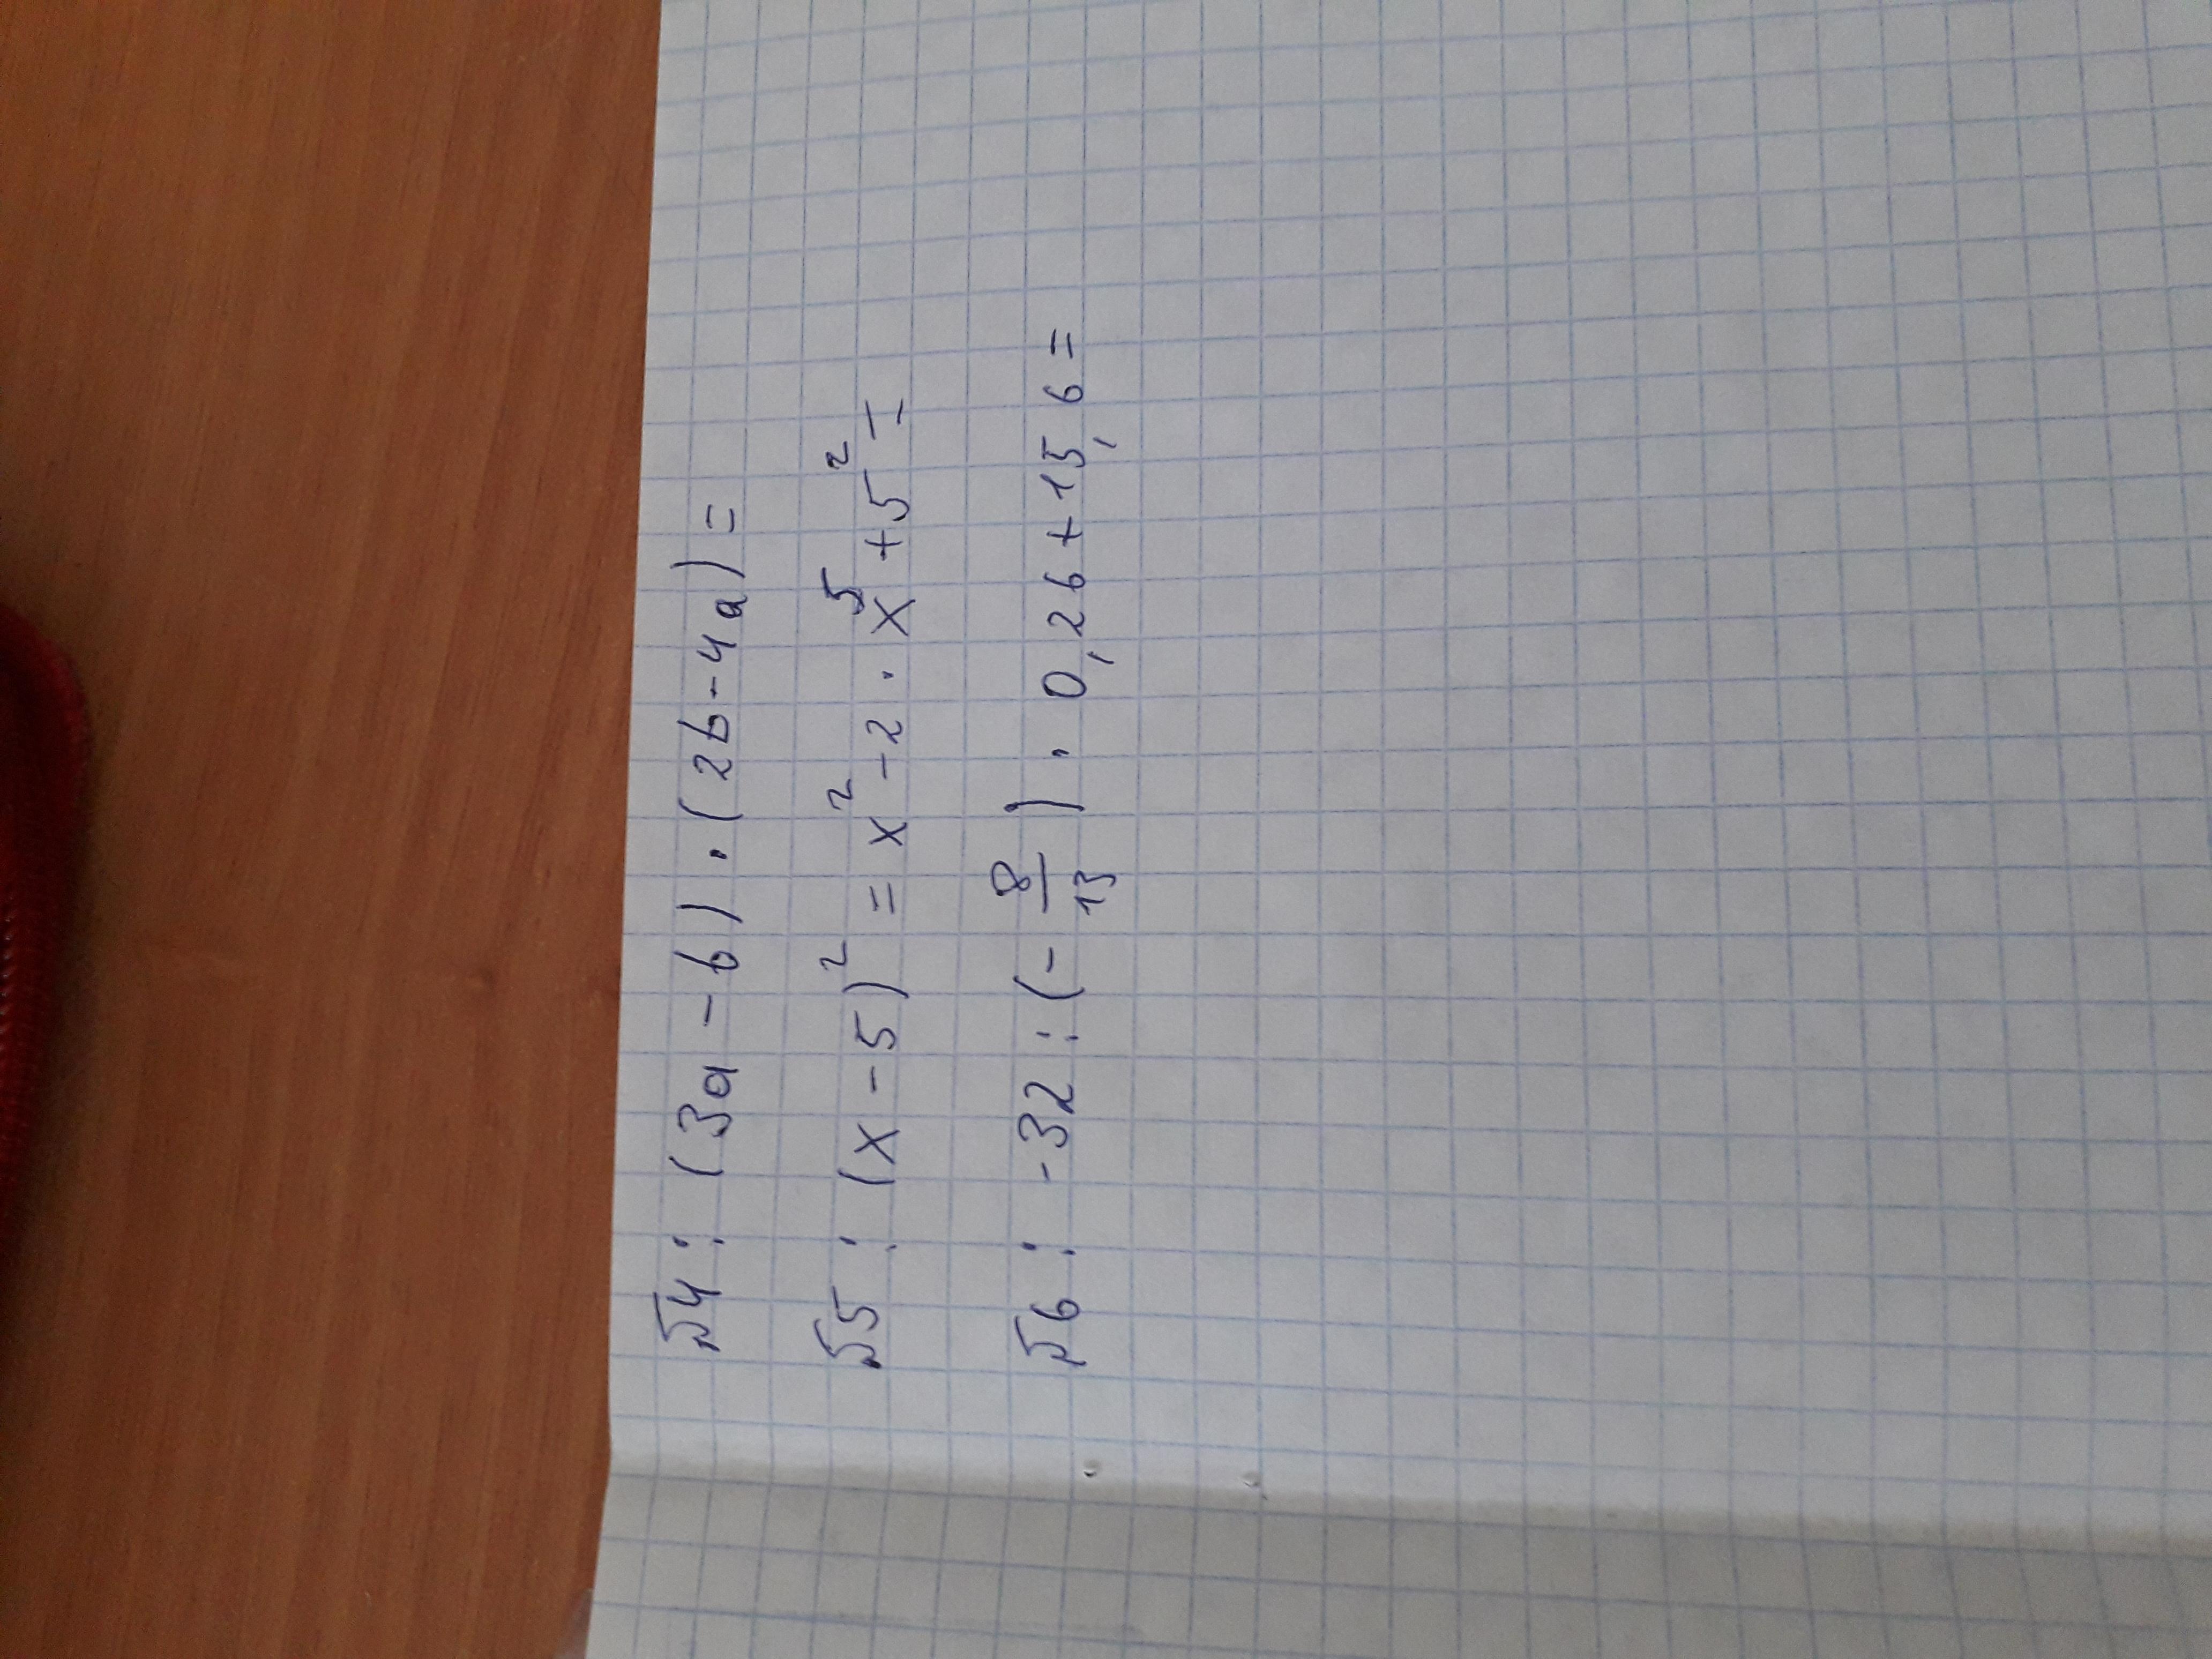 №4: (3a - b) · (2b - 4a) =
№5: (x - 5)² = x² - 2 · x⁵ + 5² =
№6: -32 : (- 8/13) · 0,26 + 15,6 =